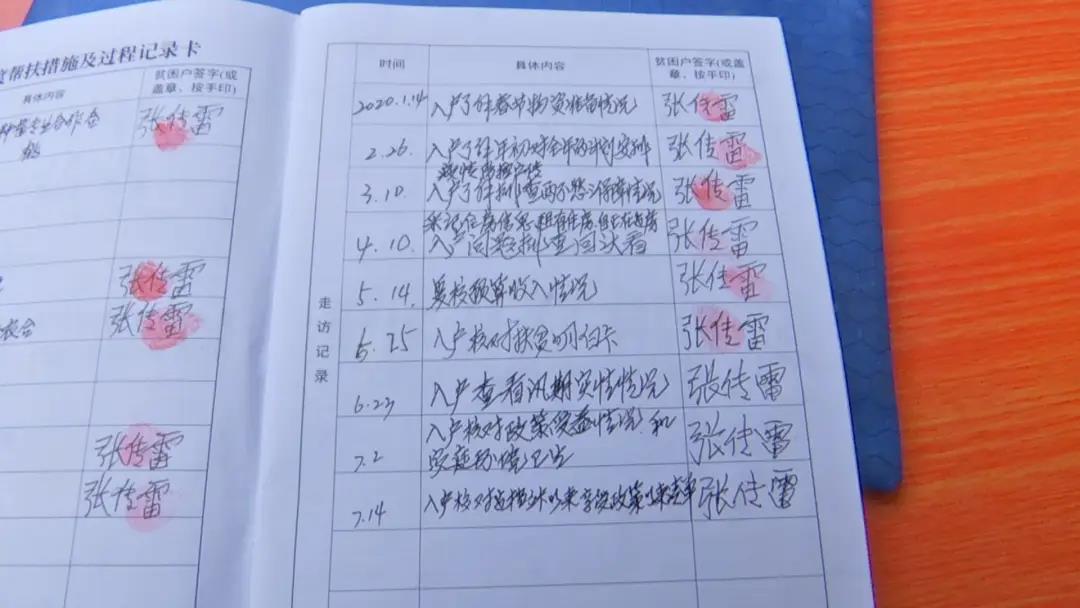 帮扶措施及过程记录卡
具体内容
贫困户签字(或
盖章、按手印)
专业合作合
张传雷
张传雷
张传雷
张传雷
张传雷
走访记录
时间
具体内容
贫困户签字(或盖
章、按手印)
2020.1.14
入户了解春节物资准备情况
张传雷
2.26.
入户了解年初对全年的计划安排
张传雷
3.10.
入户了解排查两不愁三保障情况
张传雷
4.10.
入户问题排查回头看
张传雷
5.14.
复核预算收入情况
张传雷
6.25
入户核对扶贫明白卡
张传雷
6.23
入户查看汛期灾情情况
张传雷
7.2
入户核对政策受益情况和
家庭环境卫生
张传雷
7.14
入户核对建档立卡以来享受政策
张传雷